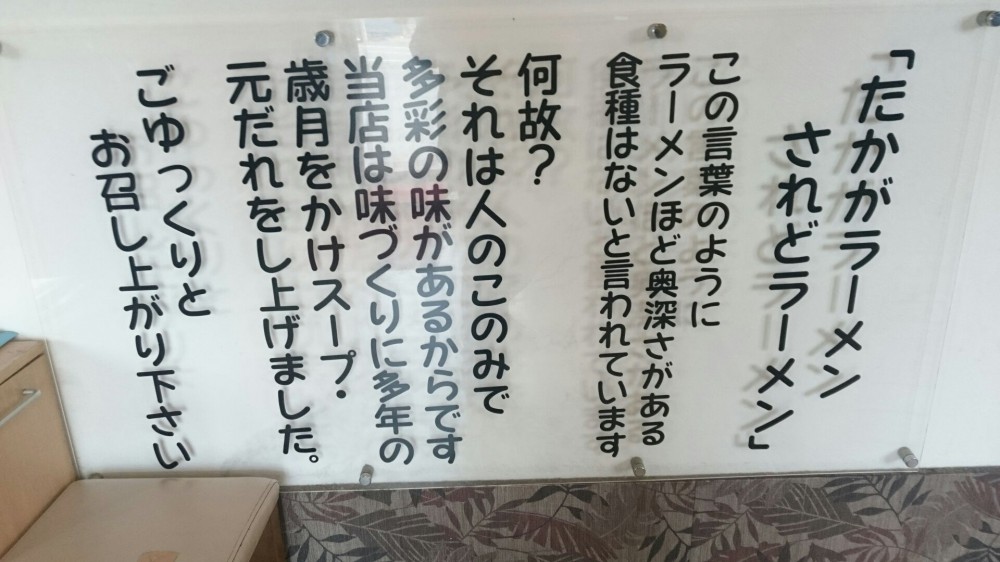 「たかがラーメン
されどラーメン」
この言葉のように
ラーメンほど奥深さがある
食種はないと言われています
何故?
それは人のこのみで
多彩の味があるからです
当店は味づくりに多年の
歳月をかけスープ・
元だれをし上げました。
ごゆっくりと
お召し上がり下さい